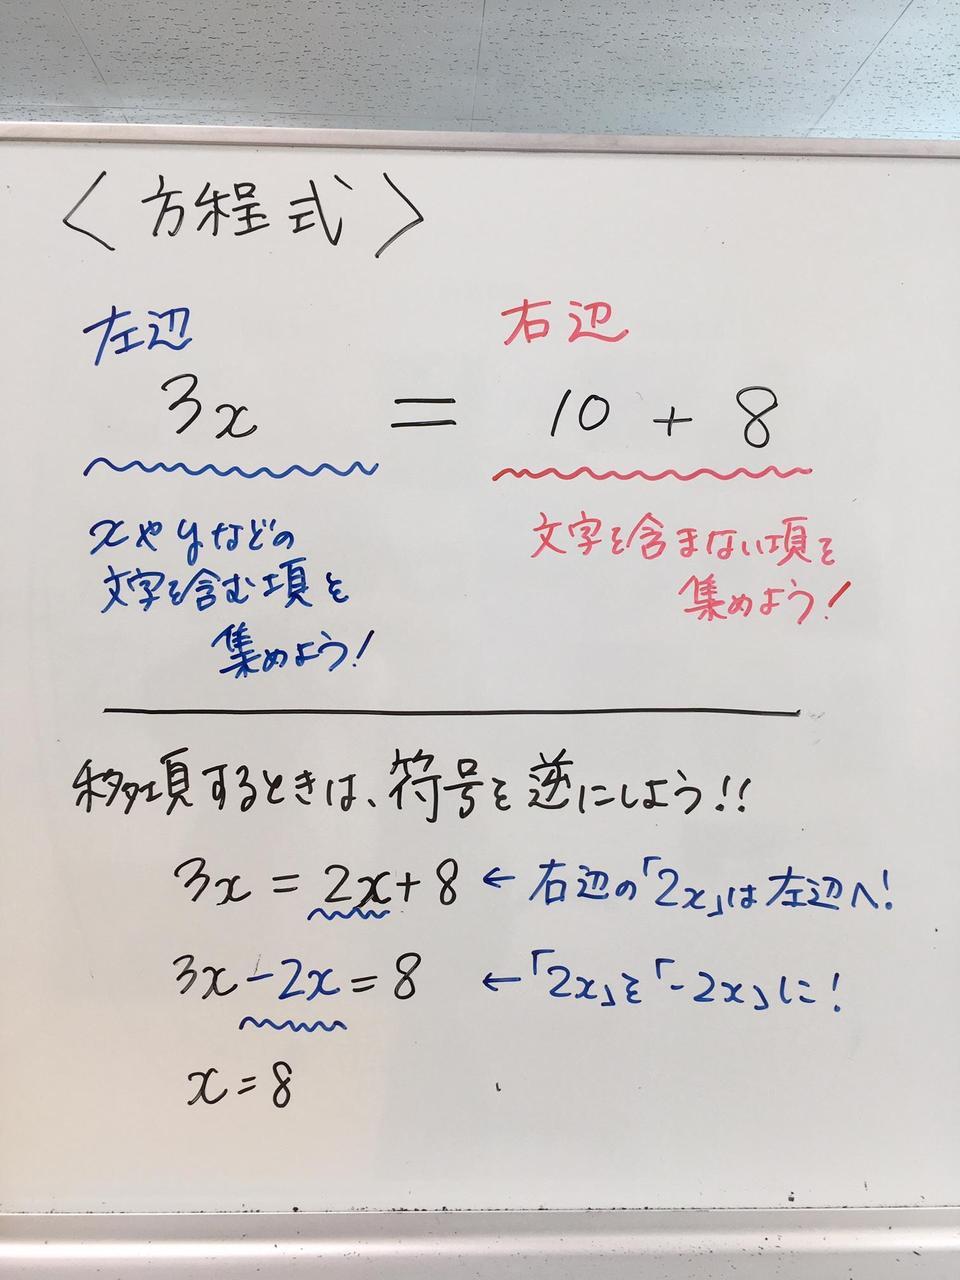 〈方程式〉
左辺 右辺
3x = 10 + 8
xやyなどの
文字を含む項を
集めよう!
文字を含まない項を
集めよう!
移項するときは、符号を逆にしよう!!
3x = 2x + 8 ← 右辺の「2x」は左辺へ!
3x - 2x = 8 ← 「2x」を「-2x」に!
x = 8